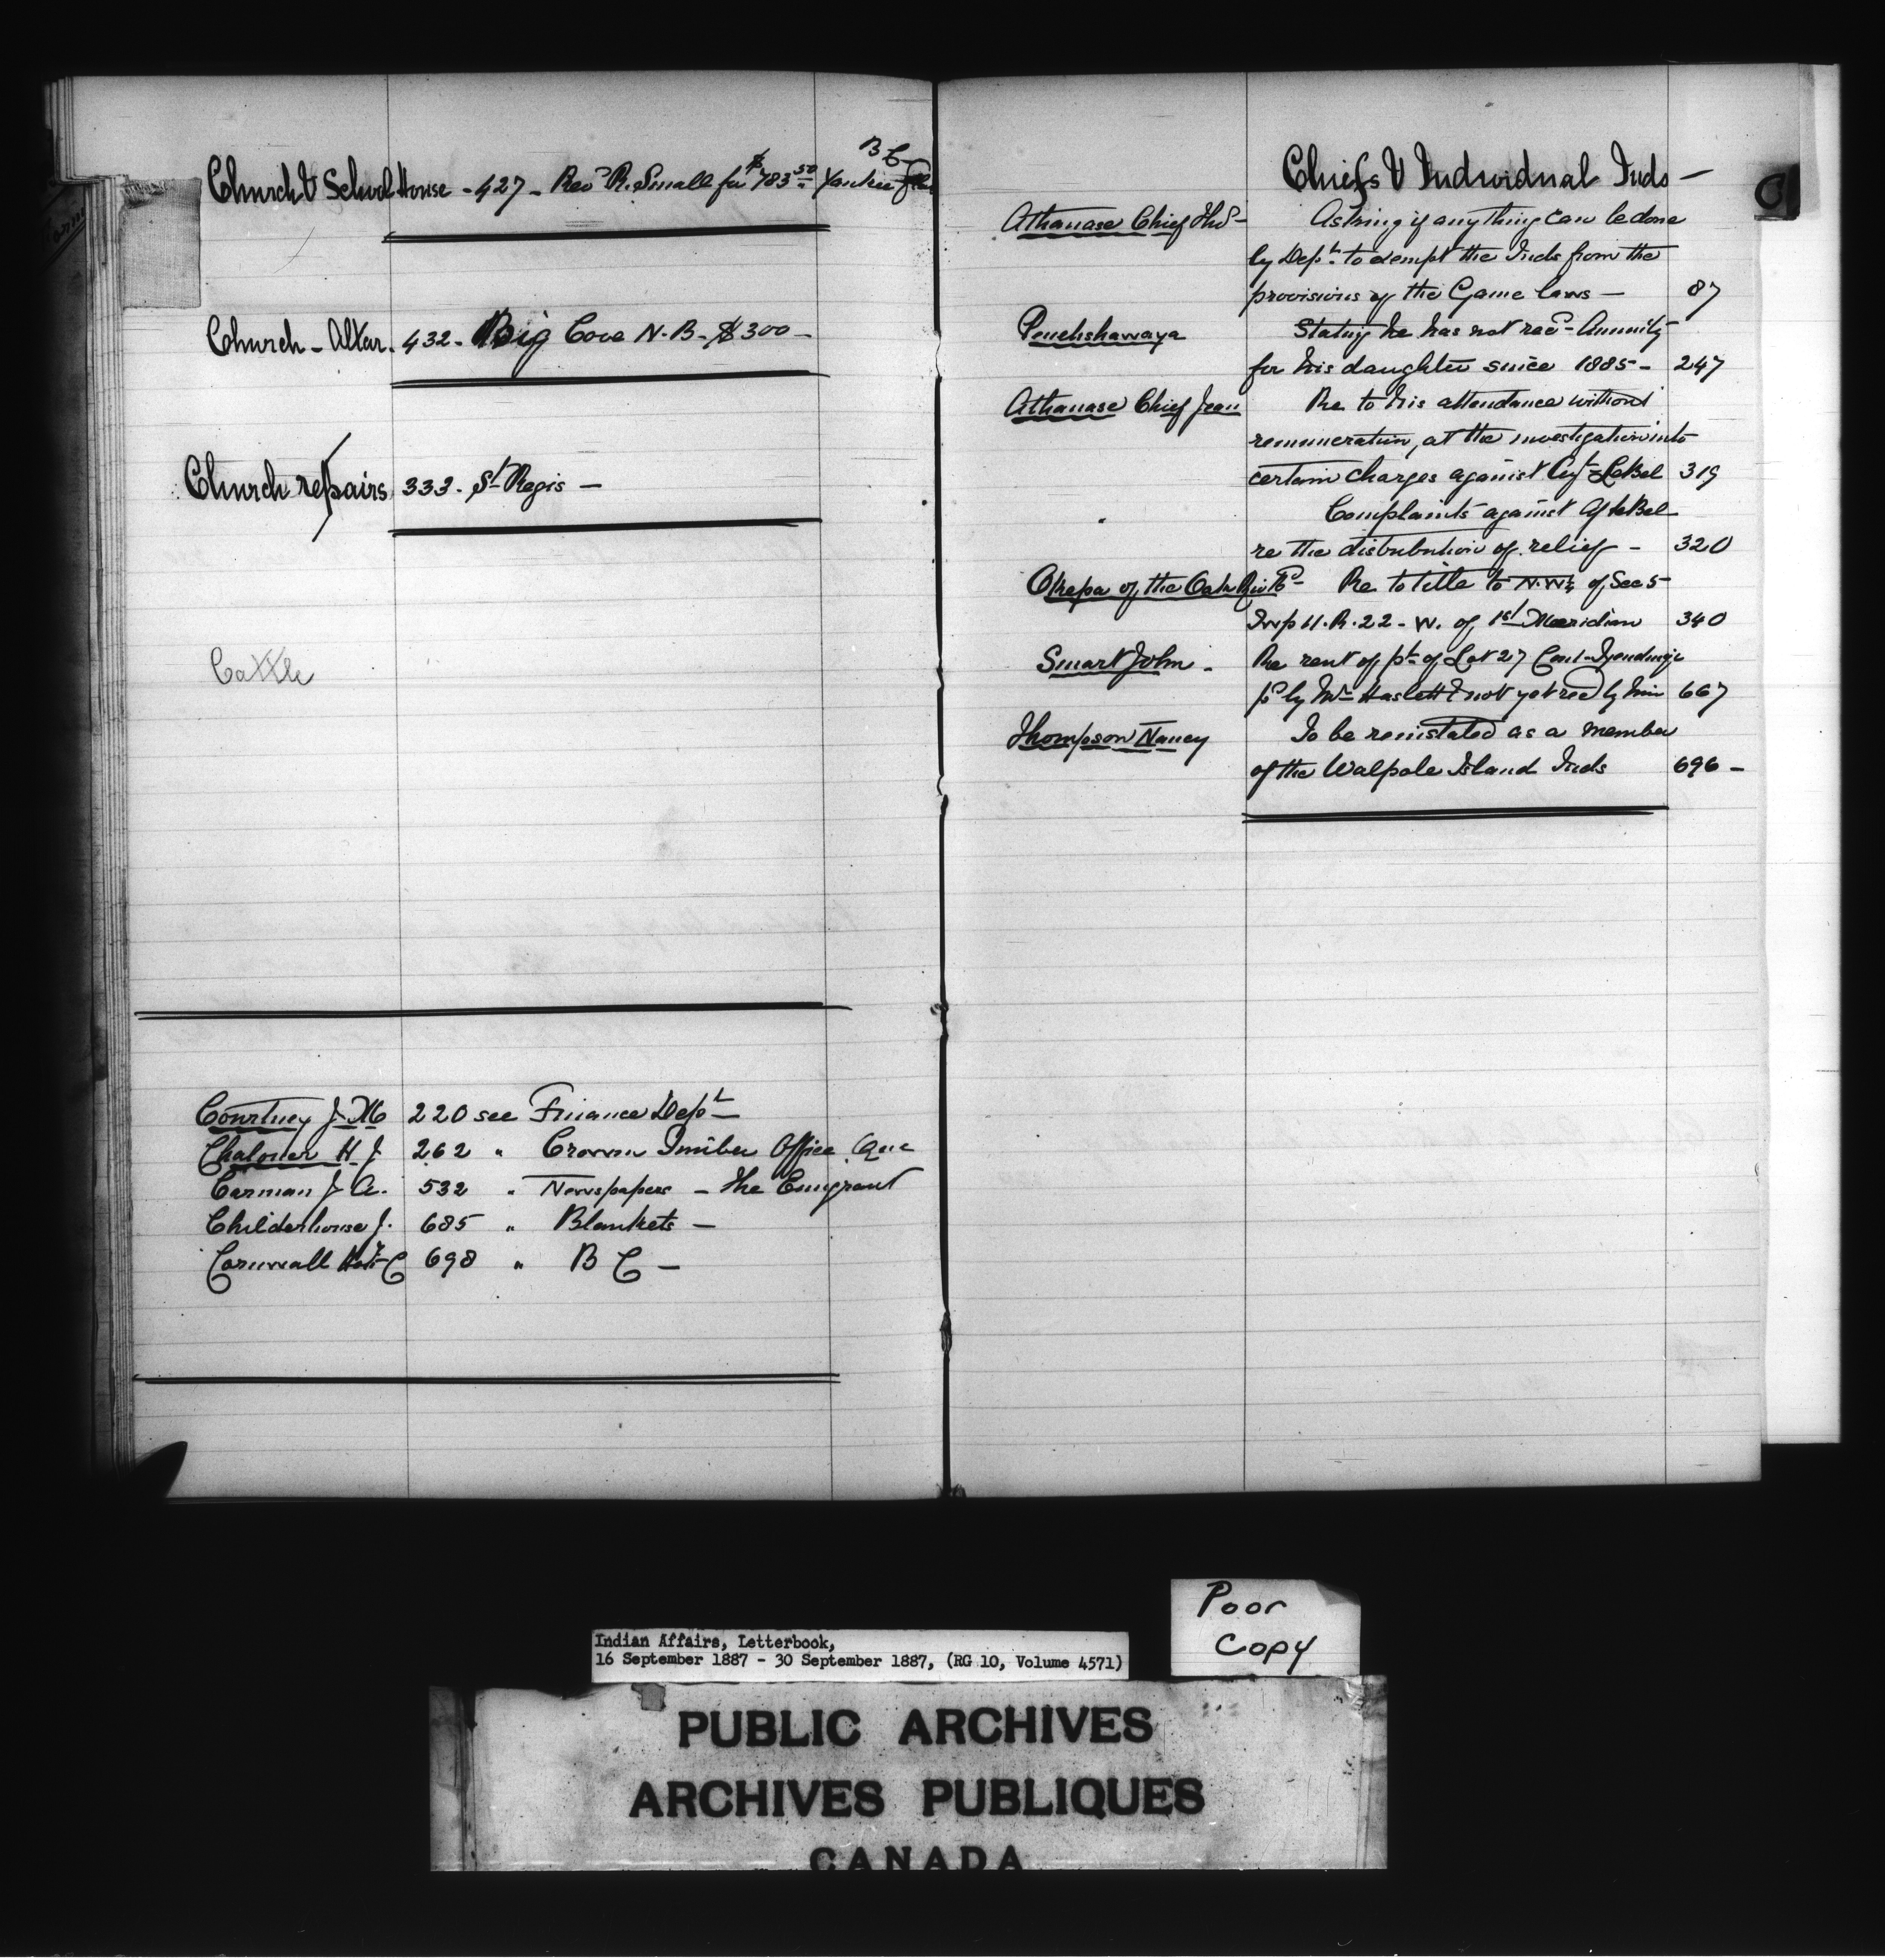 Church & School House - 427 - Rev^d R. Small for $783 50 Yankee Flat B C
Church - Altar. 432 - Big Cove N. B. - $300 -
Church repairs 333 - St Regis -
Cattle
Courtney J. M 220 see Finance Dept -
Chaloner H J 262 " Crown Timber Office Que
Carman J. A. 532 " Newspapers - The Emigrant
Childerhouse J. 685 " Blankets -
Cornwall C 698 " B C -
Chiefs & Individual Inds -
C
Athanase Chief Ths - Asking if anything can be done
by Dept. to exempt the Inds from the
provisions of the Game laws - 87
Penehshawaya Stating he has not recd Annuity
for his daughter since 1885 - 247
Athanase Chief Jean Re to his attendance without
remuneration, at the investigation into
certain charges against Agt LeBel 319
Complaints against Agt LeBel
re the distribution of relief - 320
of the Oak Riv Re to title to N.W¼ of Sec 5
Twp 11. R. 22 - W. of 1st Meridian 340
Smart John - Re rent of pt of Lot 27 Con 1 - Tyendinaga
pd by Mr Haslett & not yet recd by him 667
Thompson Nancy To be reinstated as a member
of the Walpole Island Inds 696 -
Poor
Copy
Indian Affairs, Letterbook,
16 September 1887 - 30 September 1887, (RG 10, Volume 4571)
PUBLIC ARCHIVES
ARCHIVES PUBLIQUES
CANADA